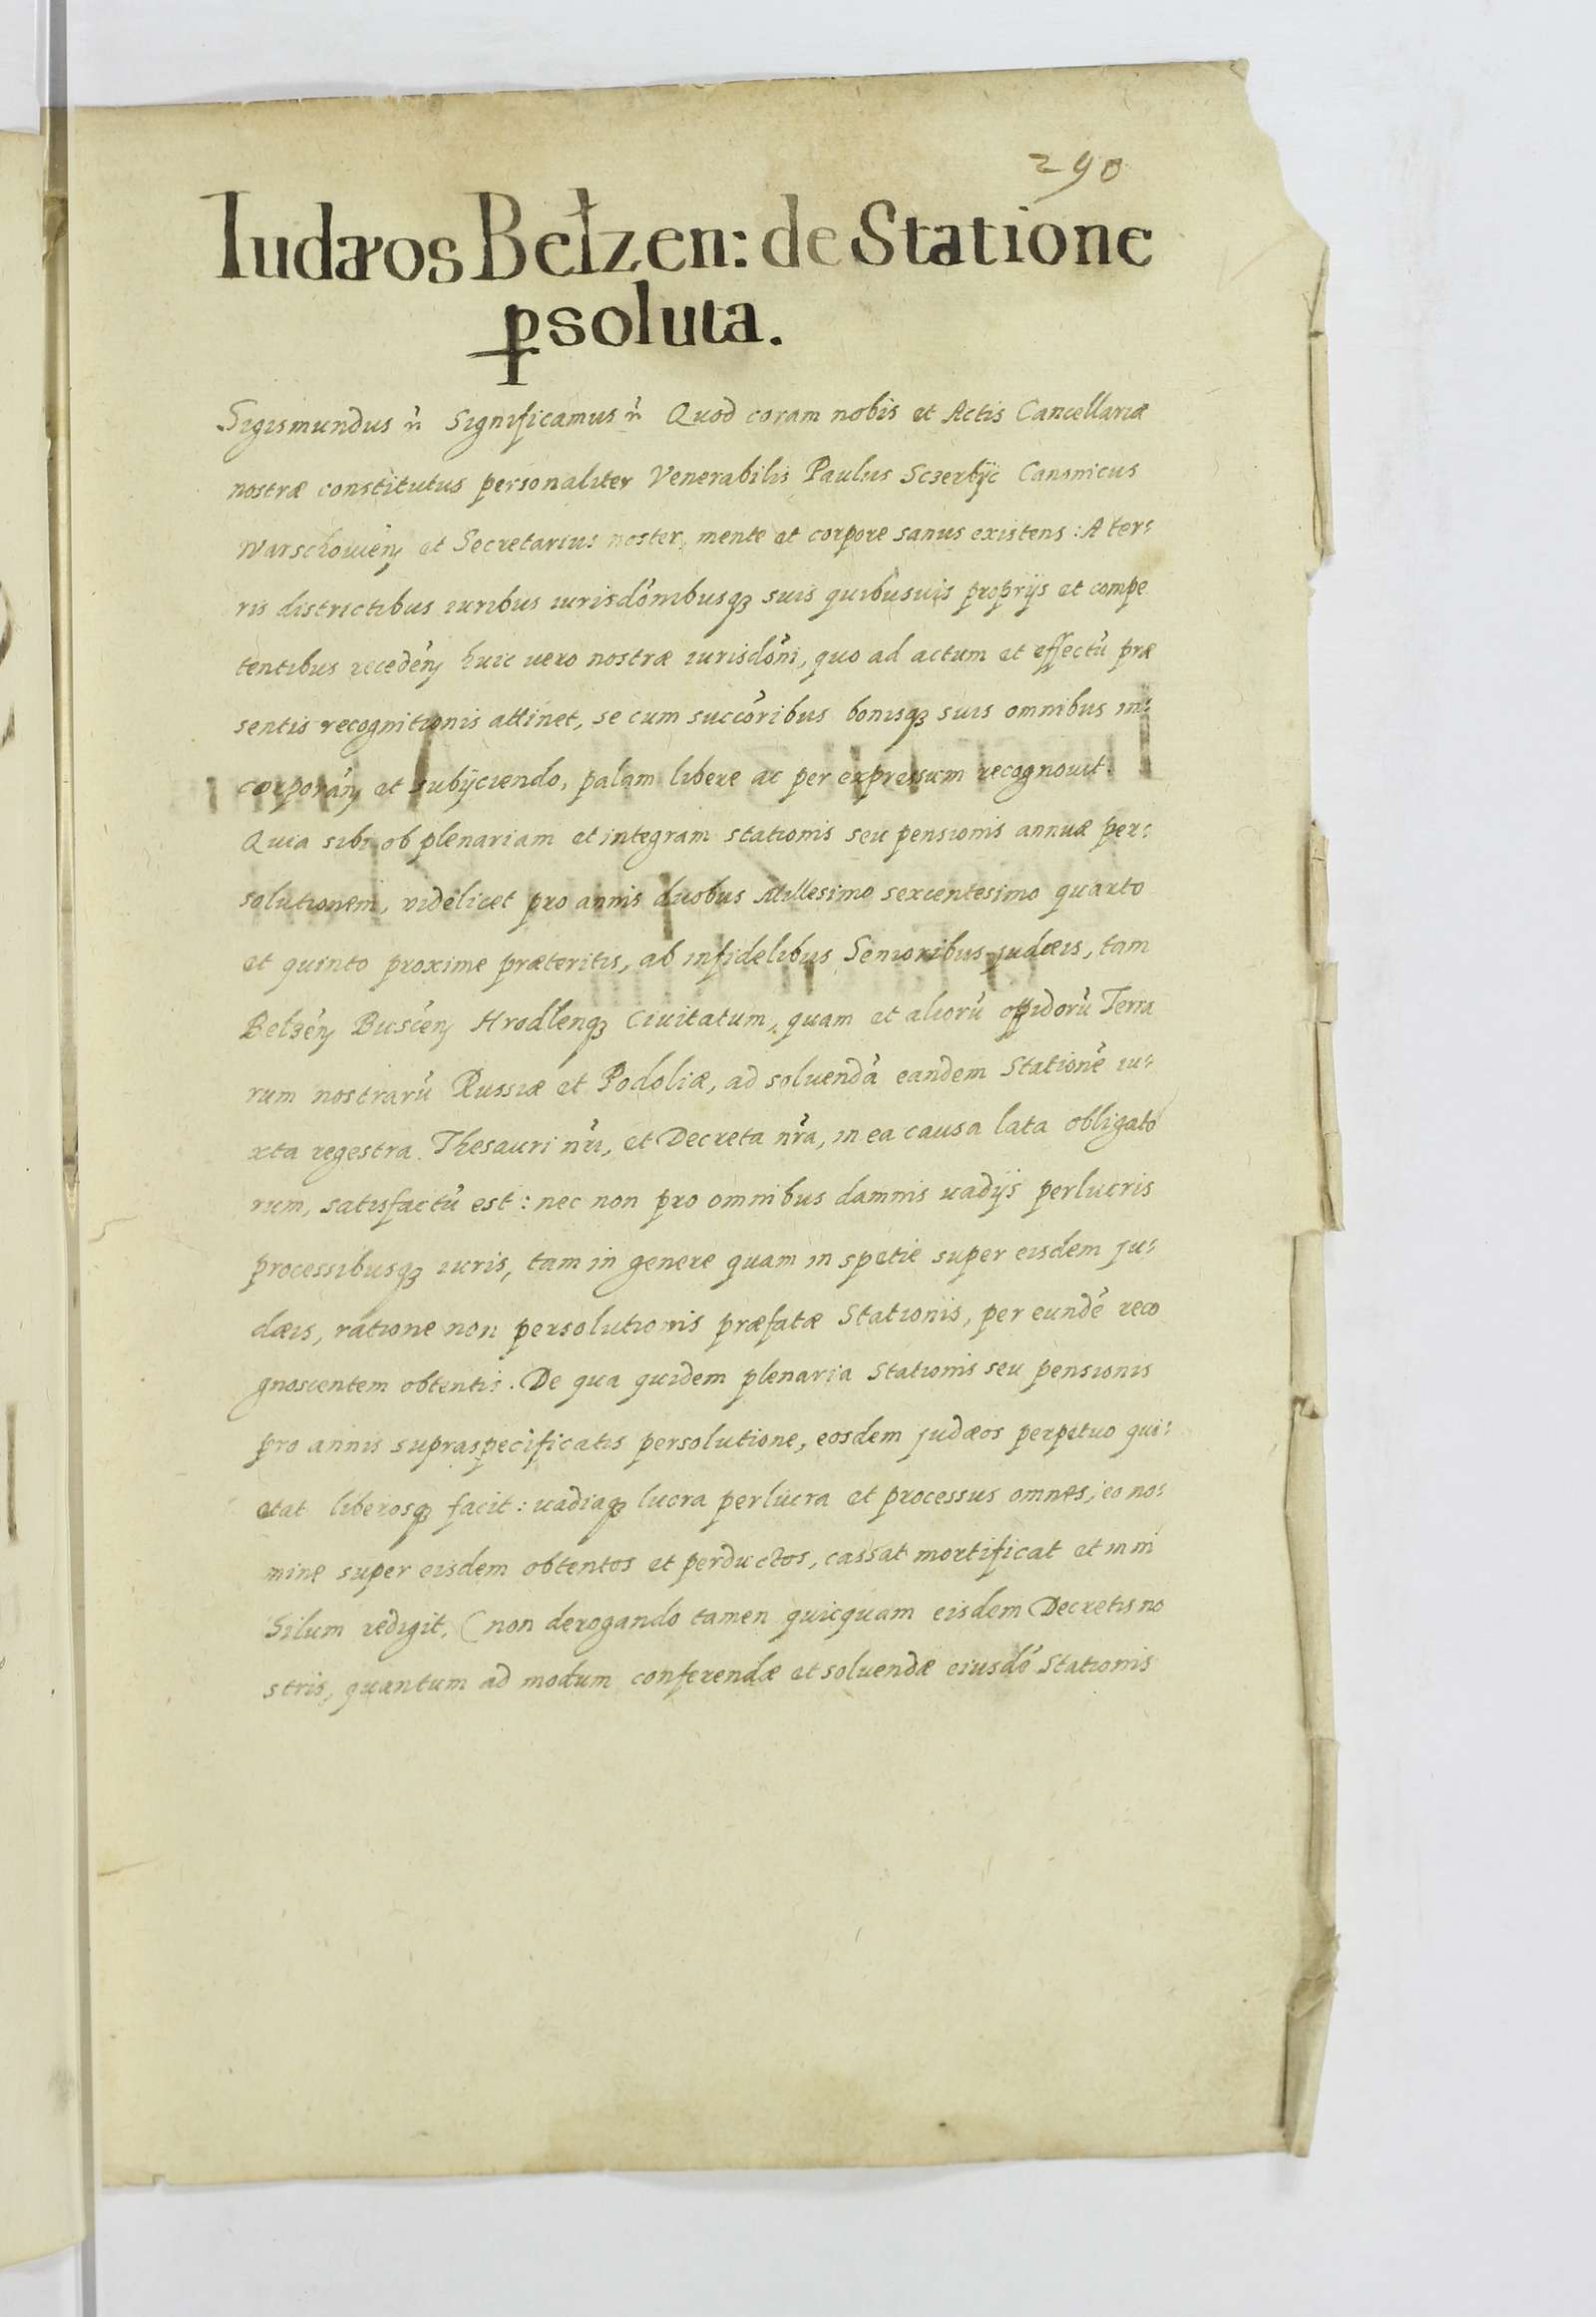 290
Iudæos Bełzen: de Statione
ꝑsoluta.
Sigismundus ñ Significamus ñ Quod coram nobis et Actis Cancellariæ
nostræ constitutus personaliter Venerabilis Paulus Sczerbÿc Canonicus
Warschouień et Secretarius noster, mente et corpore sanus existens: A ter-
ris districtibus iuribus iurisdōnibusqꝫ suis quibusuis proprijs et compe
tentibus recedeń huic uero nostræ iurisdōni, quo ad actum et effectū præ
sentis recognitionis attinet, se cum succōribus bonisqꝫ suis omnibus in-
corporań et subijciendo, palam libere ac per expressum recognouit.
Quia sibi ob plenariam et integram stationis seu pensionis annuæ per-
solutionem, videlicet pro annis duobus Millesimo sexcentesimo quarto
et quinto proxime præteritis, ab infidelibus Senioribus judæis, tam
Bełzeń Busceń Hrodlenqꝫ Ciuitatum, quam et aliorū oppidorū Terra
rum nostrarū Russiæ et Podoliæ, ad soluendā eandem Stationē iu-
xta regestra Thesauri nr̃i, et Decreta nr̃a, in ea causa lata obligato
rum, satisfactū est: nec non pro omnibus damnis uadijs perlucris
processibusqꝫ iuris, tam in genere quam in spetie super eisdem ju-
dæis, ratione non persolutionis præfatæ Stationis, per eundē reco
gnoscentem obtentis. De qua quidem plenaria Stationis seu pensionis
pro annis supraspecificatis persolutione, eosdem judæos perpetuo qui-
etat liberosqꝫ facit: uadiaqꝫ lucra perlucra et processus omnes, eo no-
mine super eisdem obtentos et perductos, cassat mortificat et in ni
hilum redigit, (non derogando tamen quicquam eisdem Decretis no
stris, quantum ad modum conferendæ et soluendæ eiusdē Stationis